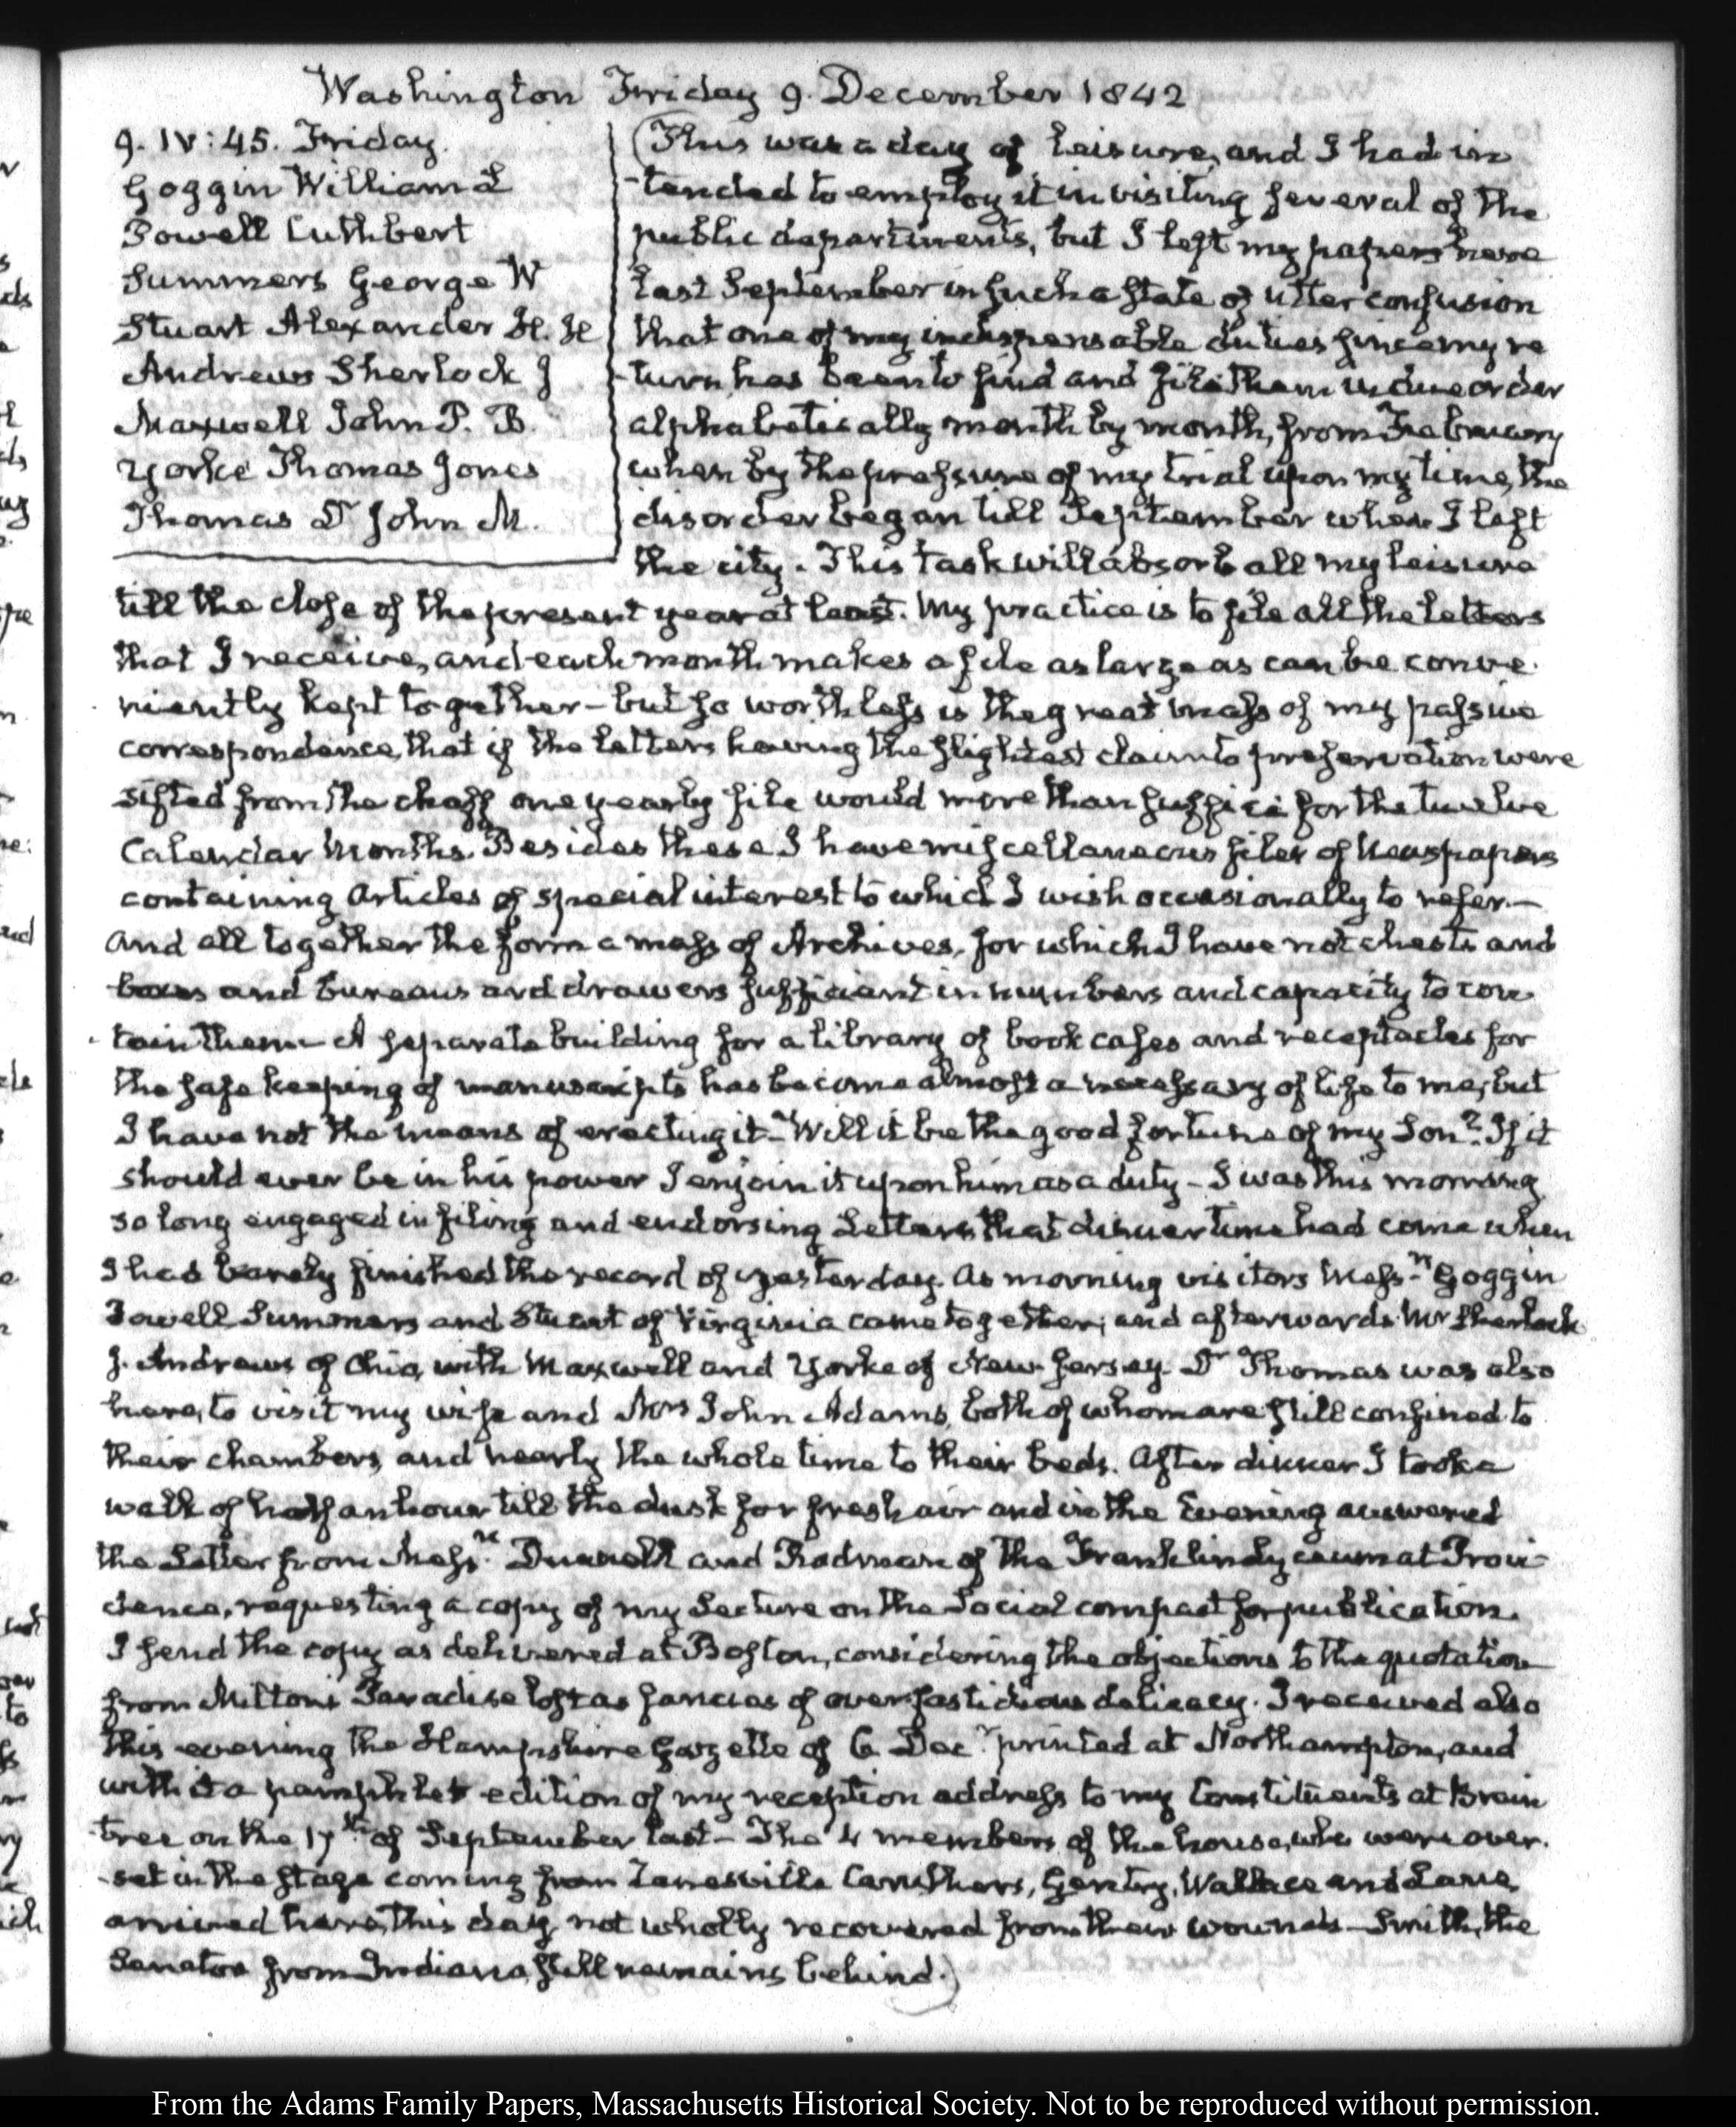 Washington Friday 9. December 1842
9. IV:45. Friday.
Goggin William L
Powell Cuthbert
Summers George W
Stuart Alexander H. H
Andrews Sherlock J
Maxwell John P. B.
Yorke Thomas Jones
Thomas Dr John M.
(This was a day of leisure, and I had in
-tended to employ it in visiting several of the
public departments, but I left my papers here
last September in such a state of utter confusion
that one of my indispensable duties since my re
-turn has been to find and file them in due order
alphabetically month by month, from February
when by the pressure of my trial upon my time, the
disorder began till September when I left
the city. This task will absorb all my leisure
till the close of the present year at least. My practice is to file all the letters
that I receive, and each month makes a file as large as can be conve
niently kept together – but so worthless is the great mass of my passive
correspondence, that if the letters having the slightest claim to preservation were
sifted from the chaff one yearly file would more than suffice for the twelve
Calendar Months. Besides these I have miscellaneous files of Newspapers
containing Articles of special interest to which I wish occasionally to refer –
and all together the form a mass of Archives, for which I have not chests and
boxes and bureaus and drawers sufficient in numbers and capacity to con
tain them – A separate building for a library of book cases and receptacles for
the safe keeping of manuscripts has become almost a necessary of life to me, but
I have not the means of erecting it – Will it be the good fortune of my Son? If it
should ever be in his power I enjoin it upon him as a duty – I was this morning
so long engaged in filing and endorsing Letters that dinner time had come when
I had barely finished the record of yesterday. As morning visitors Messrs Goggin
Powell Summers and Stuart of Virginia came together, and afterwards Mr Sherlock
J. Andrews of Ohio, with Maxwell and Yorke of New Jersey. Dr Thomas was also
here, to visit my wife and Mrs John Adams, both of whom are still confined to
their chambers, and nearly the whole time to their beds. After dinner I took a
walk of half an hour till the dusk for fresh air and in the Evening answered
the Letter from Messrs. and Rodman of the Franklin Lyceum at Provi-
dence, requesting a copy of my Lecture on the Social compact for publication.
I send the copy as delivered at Boston, considering the objections to the quotation
from Milton's Paradise lost as fancies of over fastidious delicacy. I received also
this evening the Hampshire Gazette of 6. Decr. printed at Northampton, and
with it a pamphlet edition of my reception address to my Constituents at Brain
tree on the 17th of September last – The 4 members of the house, who were over.
-set in the stage coming from Zanesville Caruthers, Gentry, Wallace and Lane,
arrived here, this day, not wholly recovered from their wounds – Smith, the
Senator from Indiana, still remains behind.)
From the Adams Family Papers, Massachusetts Historical Society. Not to be reproduced without permission.